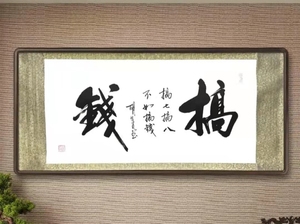 搞錢
搞七搞八
不如搞錢